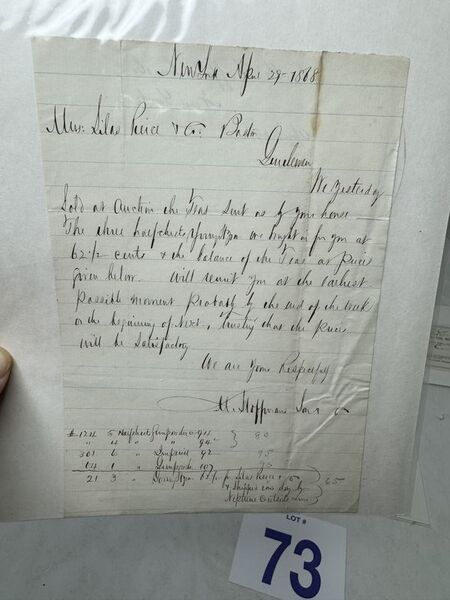 New York April 29 - 1868
Mess: Silas Peirce & Co. Boston
Gentlemen
We Yesterday
Sold at Auction the Teas sent us by your house
The three halfchests Young Hyson we bought in for you at
62 1/2 cents & the balance of the Teas at Prices
given below. Will remit you at the Earliest
Possible moment Probably by the end of the week
or the beginning of next, trusting that the Prices
will be Satisfactory
We are Yours Respectfully
M. Hoffman Son & Co
# 1214 5 Halfchests Gunpowder 94
" 4 " " 94 } 80
301 6 " Imperial 92 75
1 " Gunpowder 107
21 3 " Young Hyson for Silas Peirce & Co
& Shipped this day by
Neptune Outside Line } 65
LOT #
73